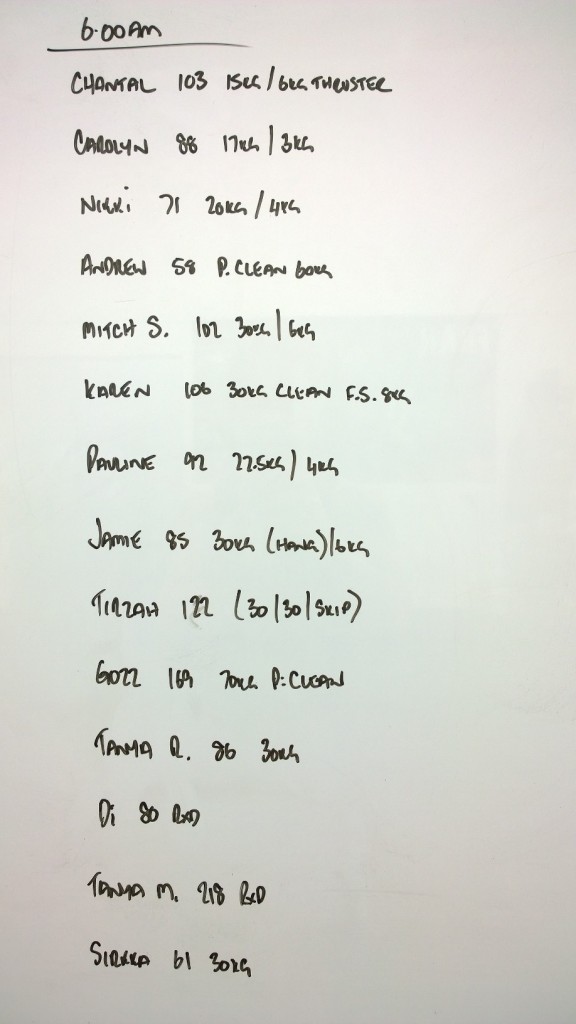 6:00AM
CHANTAL 103 15KG/6KG THRUSTER
CAROLYN 88 17KG/3KG
NIKKI 71 20KG/4KG
ANDREW 58 P.CLEAN 60KG
MITCH S. 102 30KG/6KG
KAREN 106 30KG CLEAN F.S. 8KG
PAULINE 92 22.5KG/4KG
JAMIE 85 30KG (HANG)/6KG
TIRZAH 122 (30/30/SKIP)
GOZZ 169 70KG P.CLEAN
TANYA R. 86 30KG
Di 80 RXD
TANYA M. 218 RXD
SIRKKA 61 30KG